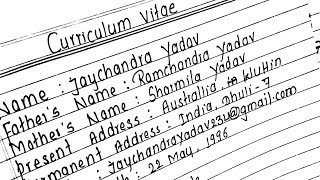 Curriculum Vitae
Name : Jaychandra Yadav
Father's Name : Ramchandra Yadav
Mother's Name : Sharmila Yadav
present Address : Australlia in Wuhin
ermanent Address : India, Dhuli-7
: Jaychandrayadav234@gmail.com
th : 22 May, 1996